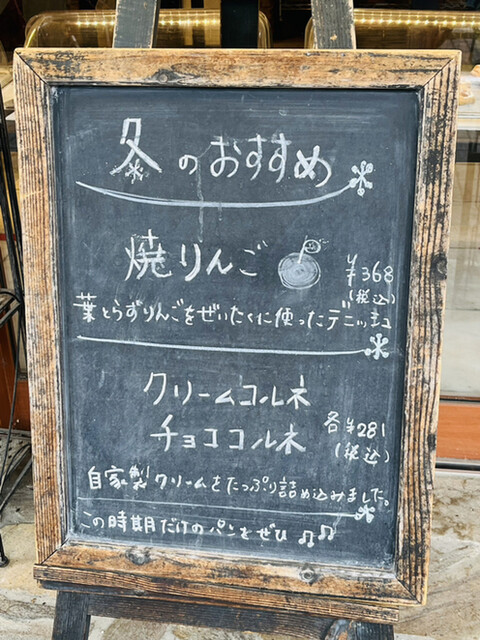 冬のおすすめ
焼りんご
¥368
(税込)
葉とらずりんごをぜいたくに使ったデニッシュ
クリームコルネ
チョココルネ
各¥281
(税込)
自家製クリームをたっぷり詰め込みました。
この時期だけのパンをぜひ♫♫